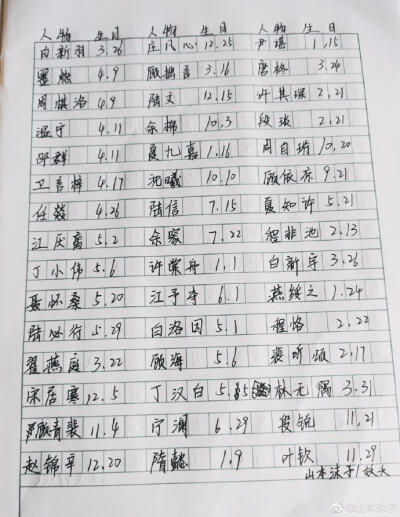 人物 生日 人物 生日 人物 生日
白新羽 3.26 庄凡心 12.25 尹琛 1.15
瞿燃 4.9 顾拙言 3.16 唐柊 3.24
周棋洛 4.9 陆文 12.15 许其琛 2.21
温宁 4.11 余棉 10.3 段琰 2.21
邵群 4.11 夏九嘉 1.16 周自珩 10.20
卫言梓 4.17 沈曦 10.10 顾依凉 9.21
任燚 4.26 陆信 7.15 夏知许 5.21
江厌离 5.2 余家 7.22 程非池 2.13
丁小伟 5.6 许棠舟 1.1 白新宇 3.26
聂怀桑 5.20 江予夺 6.1 燕绥之 1.24
陆必行 5.29 白洛因 5.1 程恪 2.22
翟燕庭 3.22 顾海 5.6 裴听颂 2.17
宋居寒 12.5 丁汉白 5.5 林无隅 3.31
顾青裴 11.4 宁澜 6.29 段锐 11.21
赵锦辛 12.20 隋懿 1.9 叶钦 11.29